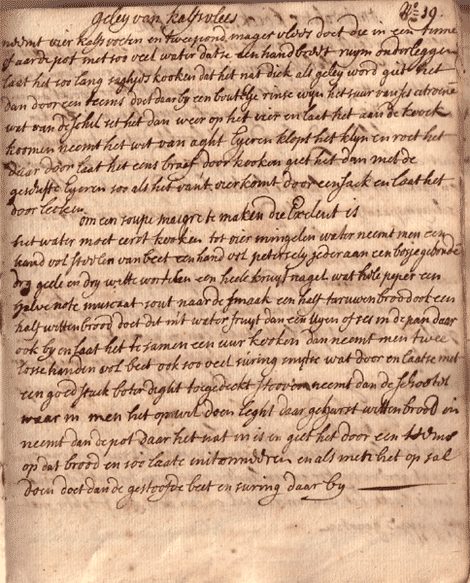 geley van kalfsvlees
No 39.
neemt vier kalfsvoeten en twee pond mager vlees doet die in een tinne
of aarde pot met soo veel water datse een handbreet ruym onder leggen
laat het soo lang saghjes kooken dat het nat dick als geley word giet het
dan door een teems doet daar by een boutelje rinse wyn het suur van ses citroene
wat van de schil set het dan weer op het vier en laat het aan de koock
koomen neemt het wit van aght Eyeren klopt het klyn en roert het
daar door laat het eens braaf door kooken giet het dan met de
Eyeren soo als het van't vier komt door een sack en laat het
door lecken
om een soupe maigre te maken die Exelent is
het water moet eerst kooken tot vier mingelen water neemt men een
hand vol stoelen van beet een hand vol petersely jeder aan een bosje gebonde
dry geele en dry witte wortelen een heele kruyt nagel wat heele peper een
halve note muscaat sout naar de smaak een half taruwen brood ook een
half wittenbrood doet dit in't water fruyt dan een Uyen of ses in de pan daar
ook by en laat het te samen een uur kooken dan neemt men twee
losse handen vol beet ook soo veel suring snytse wat door en laatse met
een goed stuck boter dight toegedeckt stooven neemt dan de schootel
waar in men het op wil doen leght daar gekorst wittenbrood in
neemt dan de pot daar het nat in is en giet het door een teems
op dat brood en soo laate mitonneeren en als men het op sal
doen doet dan de gestoofde beet en suring daar by